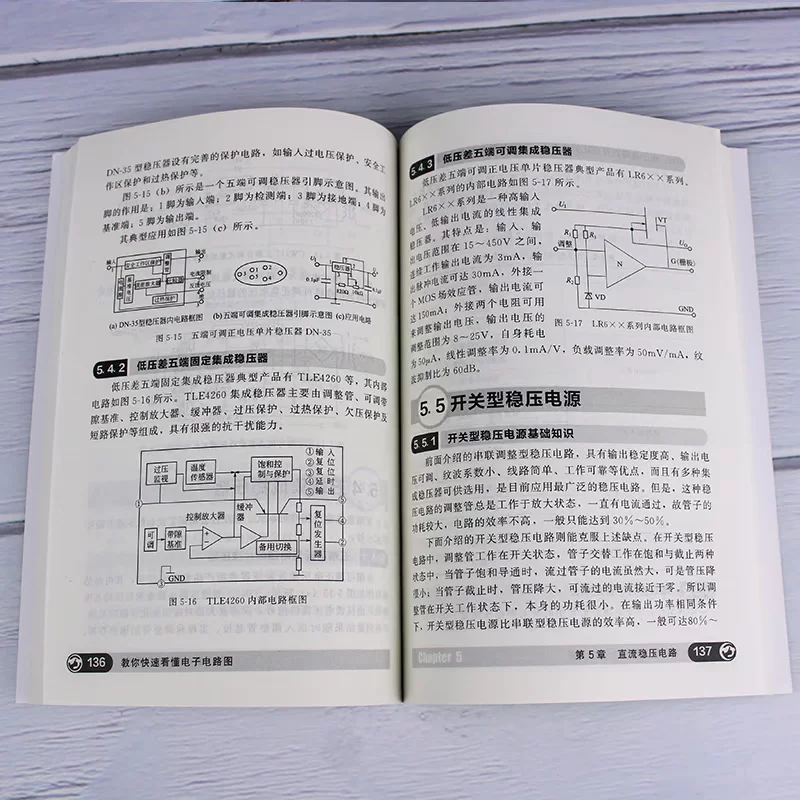 DN-35 型稳压器设有完善的保护电路，如输入过电压保护、安全工
作区保护和过热保护等。
图 5-15（b）所示是一个五端可调稳压器引脚示意图。其输出
脚的作用是：1 脚为输入端；2 脚为检测端；3 脚为接地端；4 脚为
基准端；5 脚为输出端。
其典型应用如图 5-15（c）所示。
输入
安全工作区保护
调整管
输出
电流限制
反馈电压
过热保护
O1
O2
O3
O4
O5
Ui
稳压器
Uo
(a) DN-35型稳压器内电路框图
(b) 五端可调集成稳压器引脚示意图
(c)应用电路
图 5-15 五端可调正电压单片稳压器 DN-35
5.4.2 低压差五端固定集成稳压器
低压差五端固定集成稳压器典型产品有 TLE4260 等，其内部
电路如图 5-16 所示。TLE4260 集成稳压器主要由调整管、可调带
隙基准、控制放大器、缓冲器、过压保护、过热保护、欠压保护及
短路保护等组成，具有很强的抗干扰能力。
过压监视
温度传感器
饱和控制与保护
①输入
②复位
③复位
④延时
⑤输出
控制放大器
缓冲器
可调
带隙基准
备用切换
复位发生器
①
⑤
④
②
③
GND
图 5-16 TLE4260 内部电路框图
136 教你快速看懂电子电路图
5.4.3 低压差五端可调集成稳压器
低压差五端可调正电压单片稳压器典型产品有 LR6××系列。
LR6××系列的内部电路如图 5-17 所示。
LR6××系列是一种高输入
电压、低输出电流的线性集成
稳压器。其特点是：输入、输
出电压范围在 15～450V 之间，
连续工作输出电流为 3mA，输
出脉冲电流可达 30mA，外接一
个 MOS 场效应管，输出电流可
达 150mA；外接两个电阻可用
来调整输出电压，输出电压的
调整范围为 8～25V，自身耗电
为 50μA，线性调整率为 0.1mA/V，负载调整率为 50mV/mA，纹
波抑制比为 60dB。
U1
VT
R1
R3
Uo
调整
N
G(栅极)
R2
VD
GND
图 5-17 LR6××系列内部电路框图
5.5 开关型稳压电源
5.5.1 开关型稳压电源基础知识
前面介绍的串联调整型稳压电路，具有输出稳定度高、输出电
压可调、纹波系数小、线路简单、工作可靠等优点，而且有多种集
成稳压器可供选用，是目前应用最广泛的稳压电路。但是，这种稳
压电路的调整管总是工作于放大状态，一直有电流通过，故管子的
功耗较大，电路的效率不高，一般只能达到 30%～50%。
下面介绍的开关型稳压电路则能克服上述缺点。在开关型稳压
电路中，调整管工作在开关状态，管子交替工作在饱和与截止两种
状态中，当管子饱和导通时，流过管子的电流虽然大，可是管压降
很小；当管子截止时，管压降大，可流过的电流接近于零。所以调
整管在开关工作状态下，本身的功耗很小。在输出功率相同条件
下，开关型稳压电源比串联型稳压电源的效率高，一般可达80%～
Chapter 5 第 5 章 直流稳压电路 137